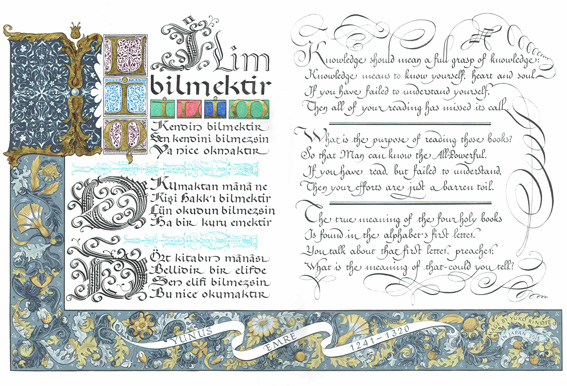 İlim
bilmektir
Kendin bilmektir
Sen kendini bilmezsin
Ya nice okmaktır
Okumaktan mânâ ne
Kişi Hakk'ı bilmektir
Çün okudun bilmezsin
Ha bir kuru emektir
Dört kitabın mânâsı
Bellidir bir elifde
Sen elifi bilmezsin
Bu nice okumaktır
Knowledge should mean a full grasp of knowledge:
Knowledge means to know yourself, heart and soul.
If you have failed to understand yourself,
Then all of your reading has missed its call.
What is the purpose of reading those books?
So that Man can know the All-Powerful.
If you have read, but failed to understand,
Then your efforts are just a barren toil.
The true meaning of the four holy books
Is found in the alphabet's first letter.
You talk about that first letter, preacher;
What is the meaning of that-could you tell?
YUNUS EMRE 1241-1320